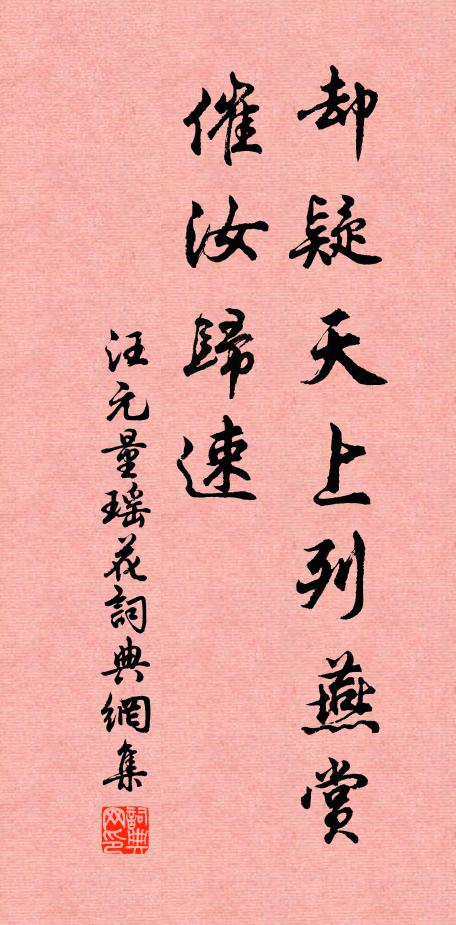 却疑天上列燕賞
催汝歸速
汪元量瑶花詞典網集
詞典网印